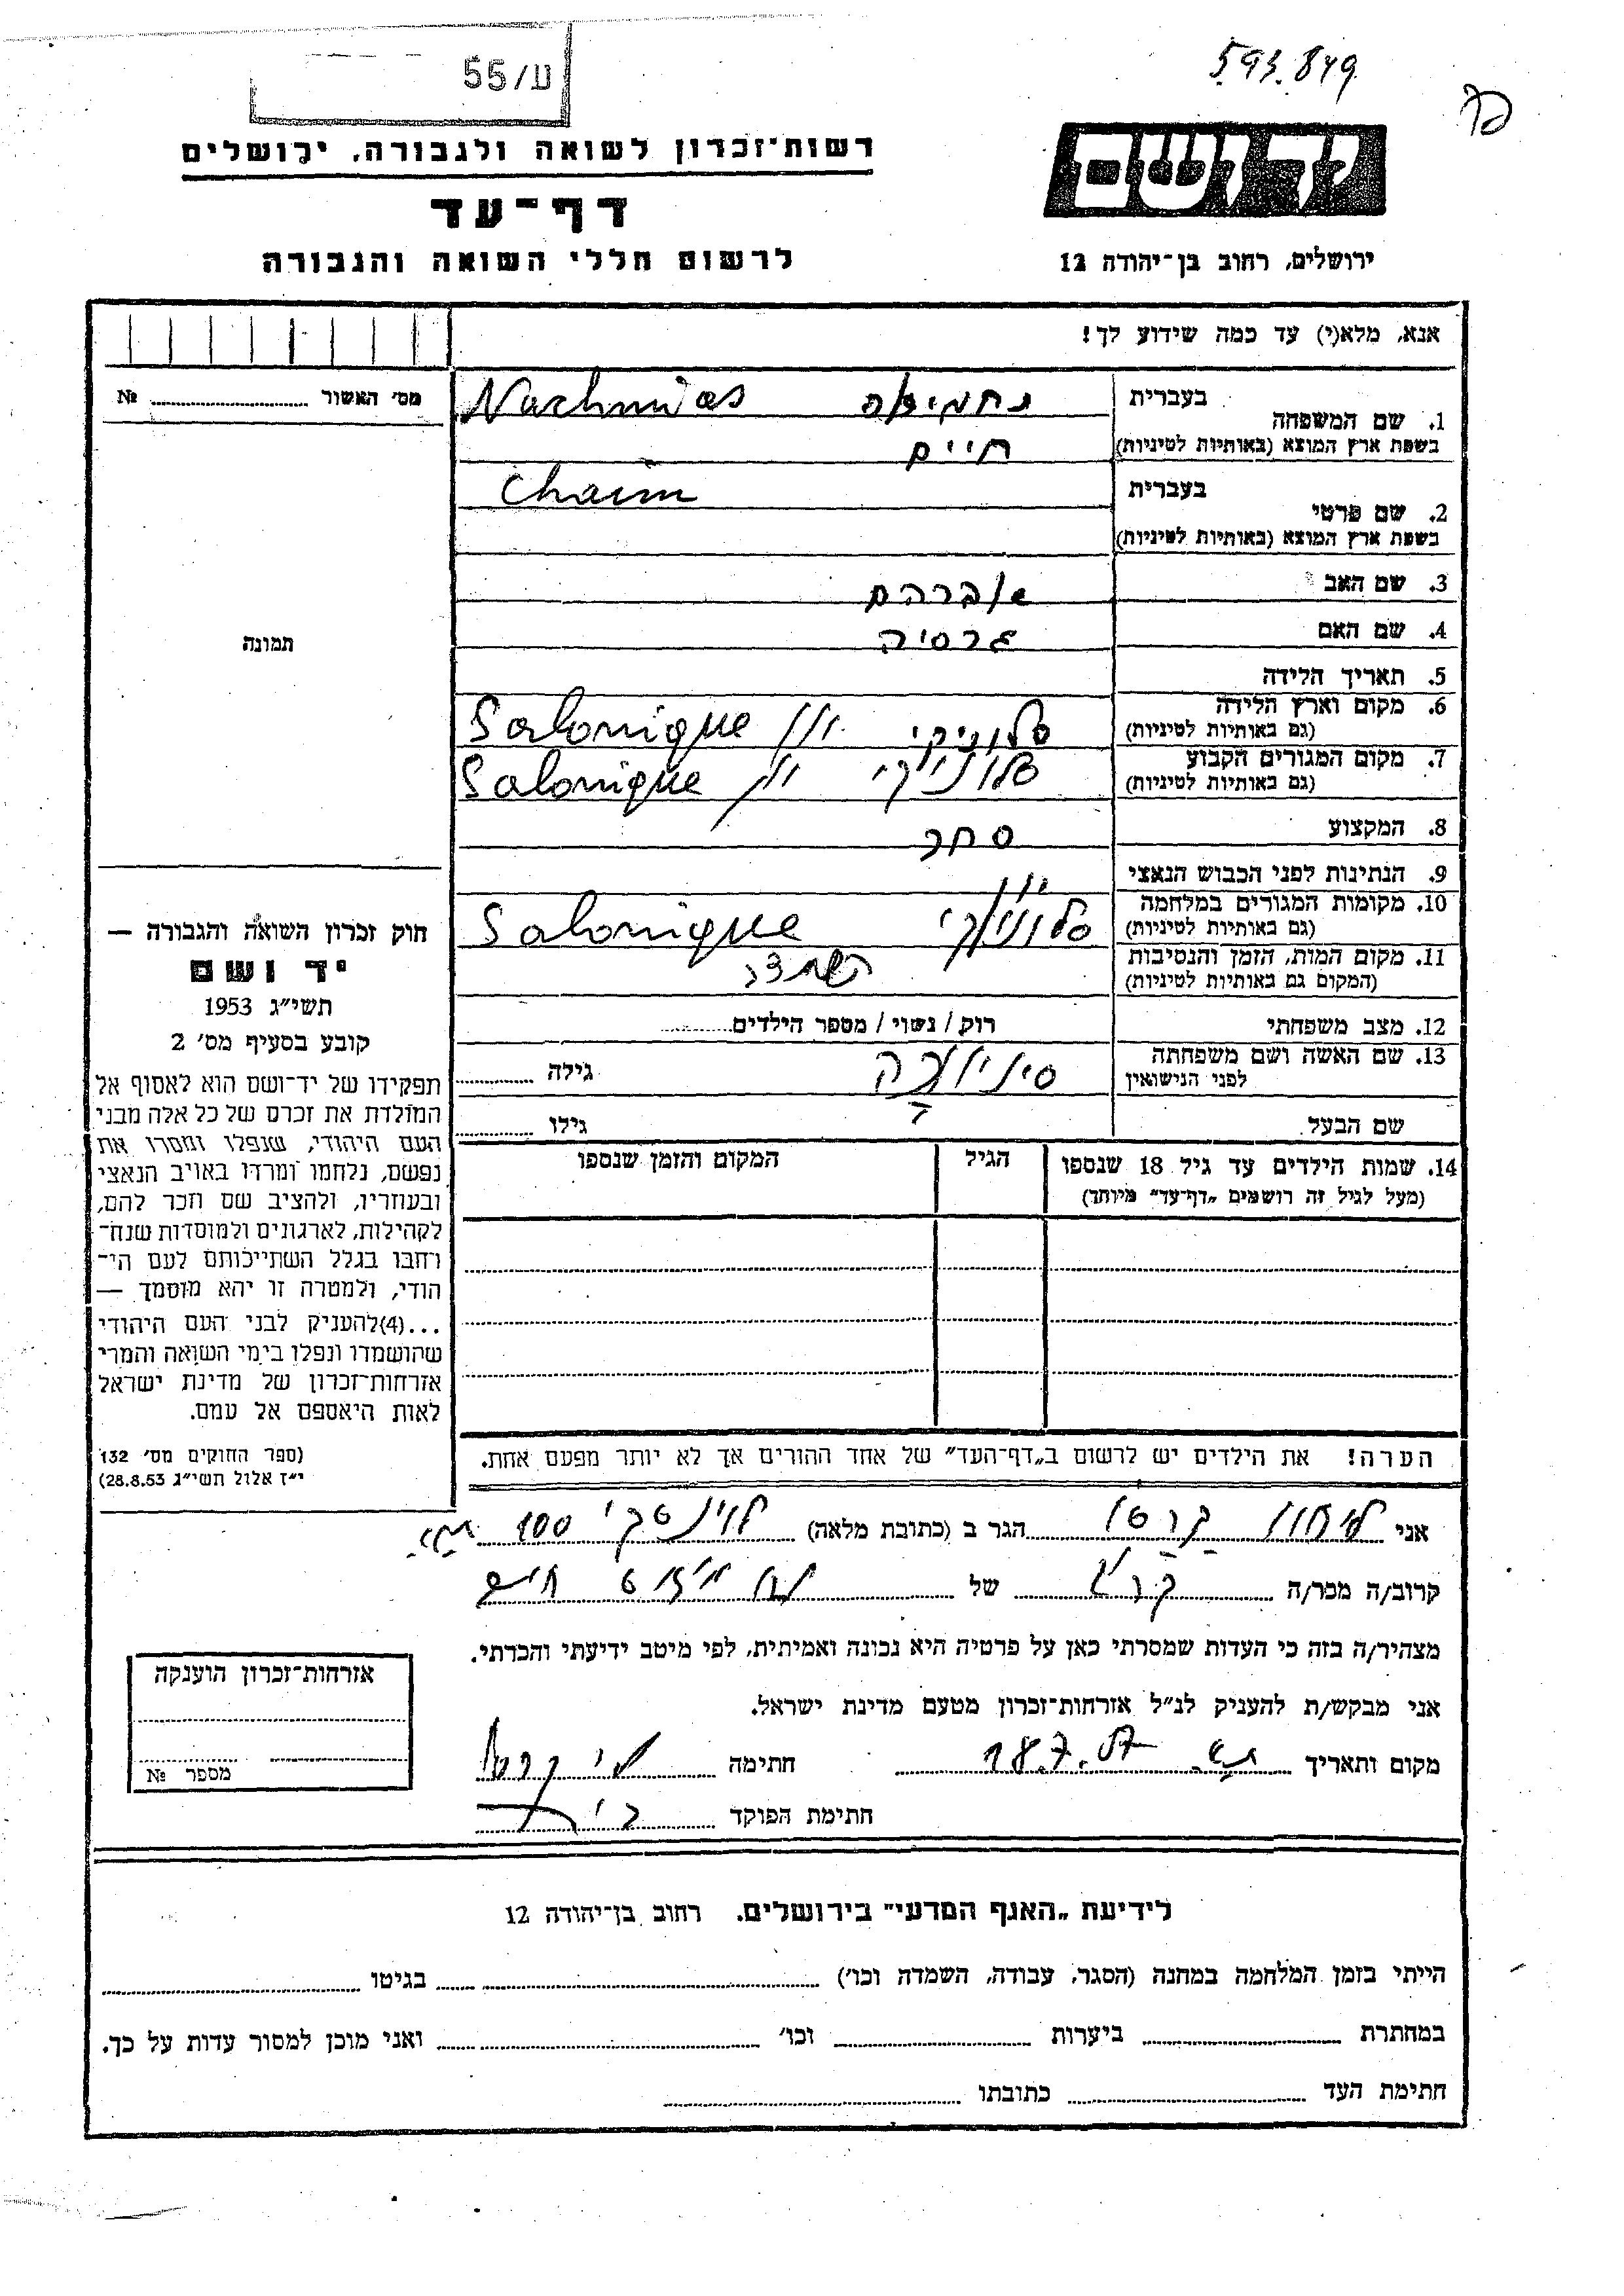 ע/55
593.849
רשות־זכרון לשואה ולגבורה, ירושלים
דף־עד
לרשום חללי השואה והגבורה
יד ושם
ירושלים, רחוב בן־יהודה 12
אנא, מלא(י) עד כמה שידוע לך!
מס׳ האשור № 
1. שם המשפחה
בעברית נחמיאס Nachmias
בשפת ארץ המוצא (באותיות לטיניות) חיים
2. שם פרטי
בעברית Chaim
בשפת ארץ המוצא (באותיות לטיניות)
3. שם האב אברהם
4. שם האם גרסיה
5. תאריך הלידה
6. מקום וארץ הלידה סלוניקי יון Salonique
(גם באותיות לטיניות)
7. מקום המגורים הקבוע סלוניקי יון Salonique
(גם באותיות לטיניות)
8. המקצוע סחר
9. הנתינות לפני הכבוש הנאצי יון
10. מקומות המגורים במלחמה סלוניקי Salonique
(גם באותיות לטיניות)
11. מקום המות, הזמן והנסיבות
(המקום גם באותיות לטיניות)
12. מצב משפחתי רוק / נשוי / מספר הילדים
13. שם האשה ושם משפחתה סיניורה גילה
לפני הנישואין
שם הבעל גילו
14. שמות הילדים עד גיל 18 שנספו הגיל המקום והזמן שנספו
(מעל לגיל זה רושמים „דף־עד״ מיוחד)
הערה! את הילדים יש לרשום ב„דף־העד״ של אחד ההורים אך לא יותר מפעם אחת.
תמונה
חוק זכרון השואה והגבורה —
יד ושם
תשי״ג 1953
קובע בסעיף מס׳ 2
תפקידו של יד־ושם הוא לאסוף אל
המולדת את זכרם של כל אלה מבני
העם היהודי, שנפלו ומסרו את
נפשם, נלחמו ומרדו באויב הנאצי
ובעוזריו, ולהציב שם וזכר להם,
לקהילות, לארגונים ולמוסדות שנח־
רחבו בגלל השתייכותם לעם הי־
הודי, ולמטרה זו יהא מוסמך —
...(4)להעניק לבני העם היהודי
שהושמדו ונפלו בימי השואה והמרי
אזרחות־זכרון של מדינת ישראל
לאות היאספם אל עמם.
(ספר החוקים מס׳ 132
י״ז אלול תשי״ג 28.8.53)
אני הגר ב (כתובת מלאה) 100
קרוב/ה מכר/ה קרוב של חיים
מצהיר/ה בזה כי העדות שמסרתי כאן על פרטיה היא נכונה ואמיתית, לפי מיטב ידיעתי והכרתי.
אני מבקש/ת להעניק לנ״ל אזרחות־זכרון מטעם מדינת ישראל.
מקום ותאריך 18.7.57 חתימה
חתימת הפוקד
אזרחות־זכרון הוענקה
מספר №
לידיעת „האגף המדעי״ בירושלים. רחוב בן־יהודה 12
הייתי בזמן המלחמה במחנה (הסגר, עבודה, השמדה וכו׳) בגיטו
במחתרת ביערות וכו׳ ואני מוכן למסור עדות על כך.
חתימת העד כתובתו